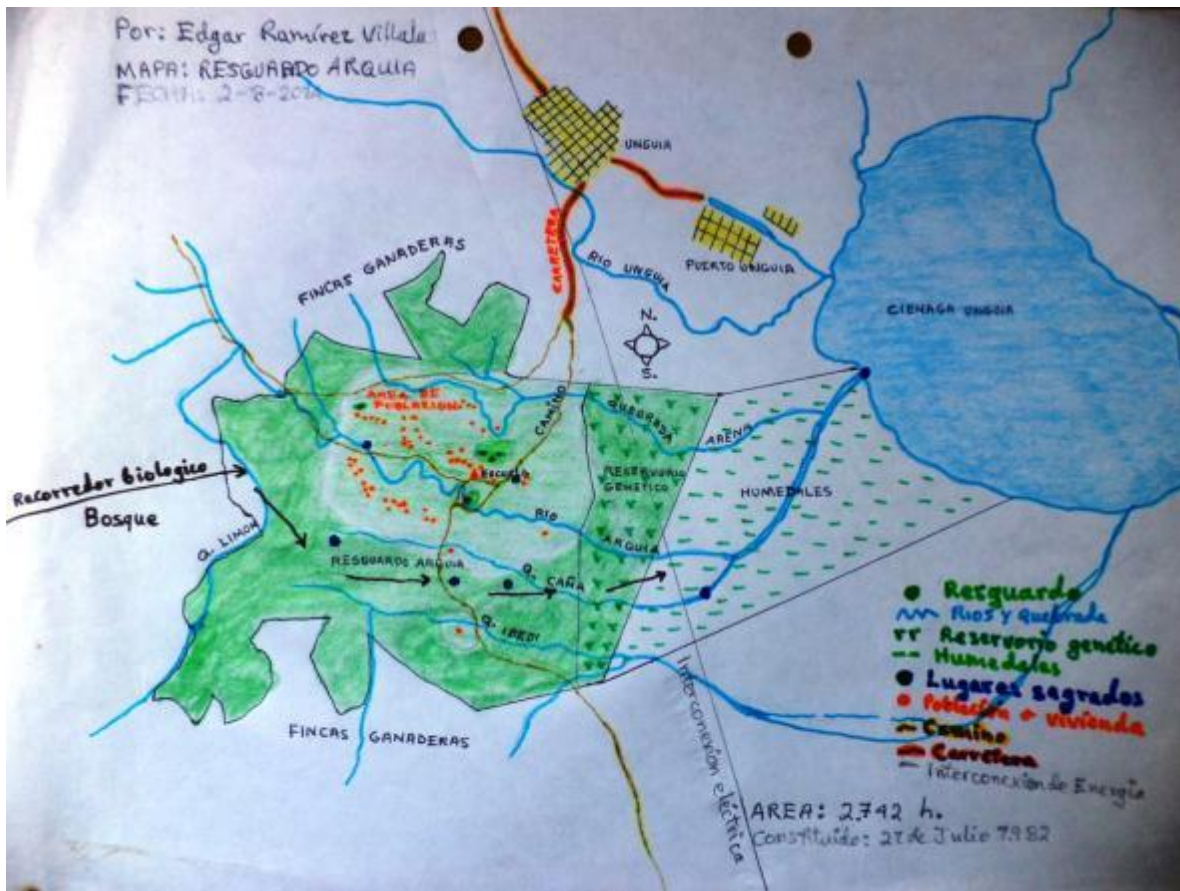 Por: Edgar Ramírez Villala
MAPA: RESGUARDO ARQUIA
FECHA: 2-8-20
UNGUIA
CARRETERA
PUERTO UNGUIA
RIO UNGUIA
CIENAGA UNGUIA
N.
S.
FINCAS GANADERAS
AREA DE
POBLACION
CAMINO
QUEBRADA
ARENA
ESCUELA
RESERVORIO
GENETICO
HUMEDALES
Recorredor biologico
Bosque
Q. LIMON
RIO
ARQUIA
RESGUARDO ARQUIA
Q. CAÑA
Q. IBEDI
FINCAS GANADERAS
Interconexión eléctrica
Resguardo
Rios y quebrada
Reservorio genético
Humedales
Lugares sagrados
Población + vivienda
Camino
Carretera
Interconexion de Energia
AREA: 2.742 h.
Constituido: 27 de Julio 1.982